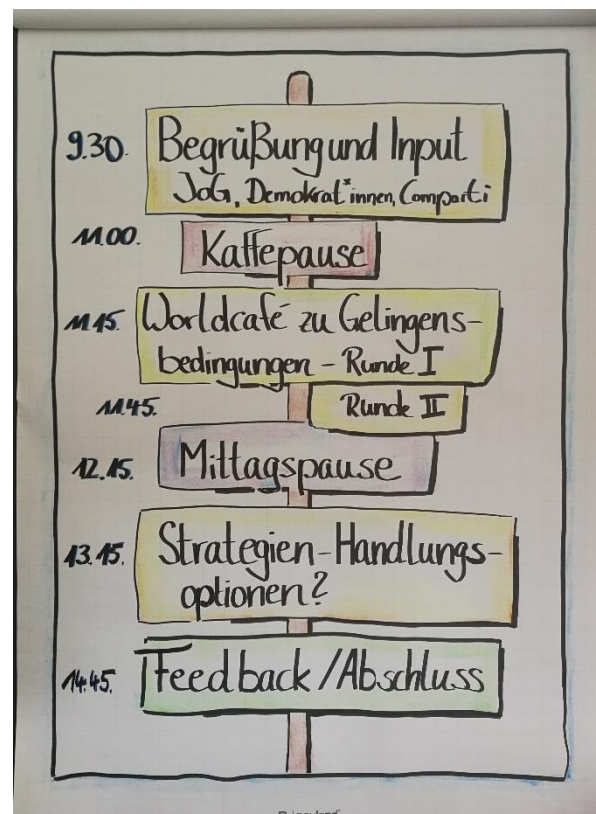 9.30. Begrüßung und Input
JoG, Demokrat*innen, Comparti
11.00. Kaffepause
11.15. Worldcafé zu Gelingens-
bedingungen - Runde I
11.45. Runde II
12.15. Mittagspause
13.15. Strategien-Handlungs-
optionen?
14.45. Feedback/Abschluss